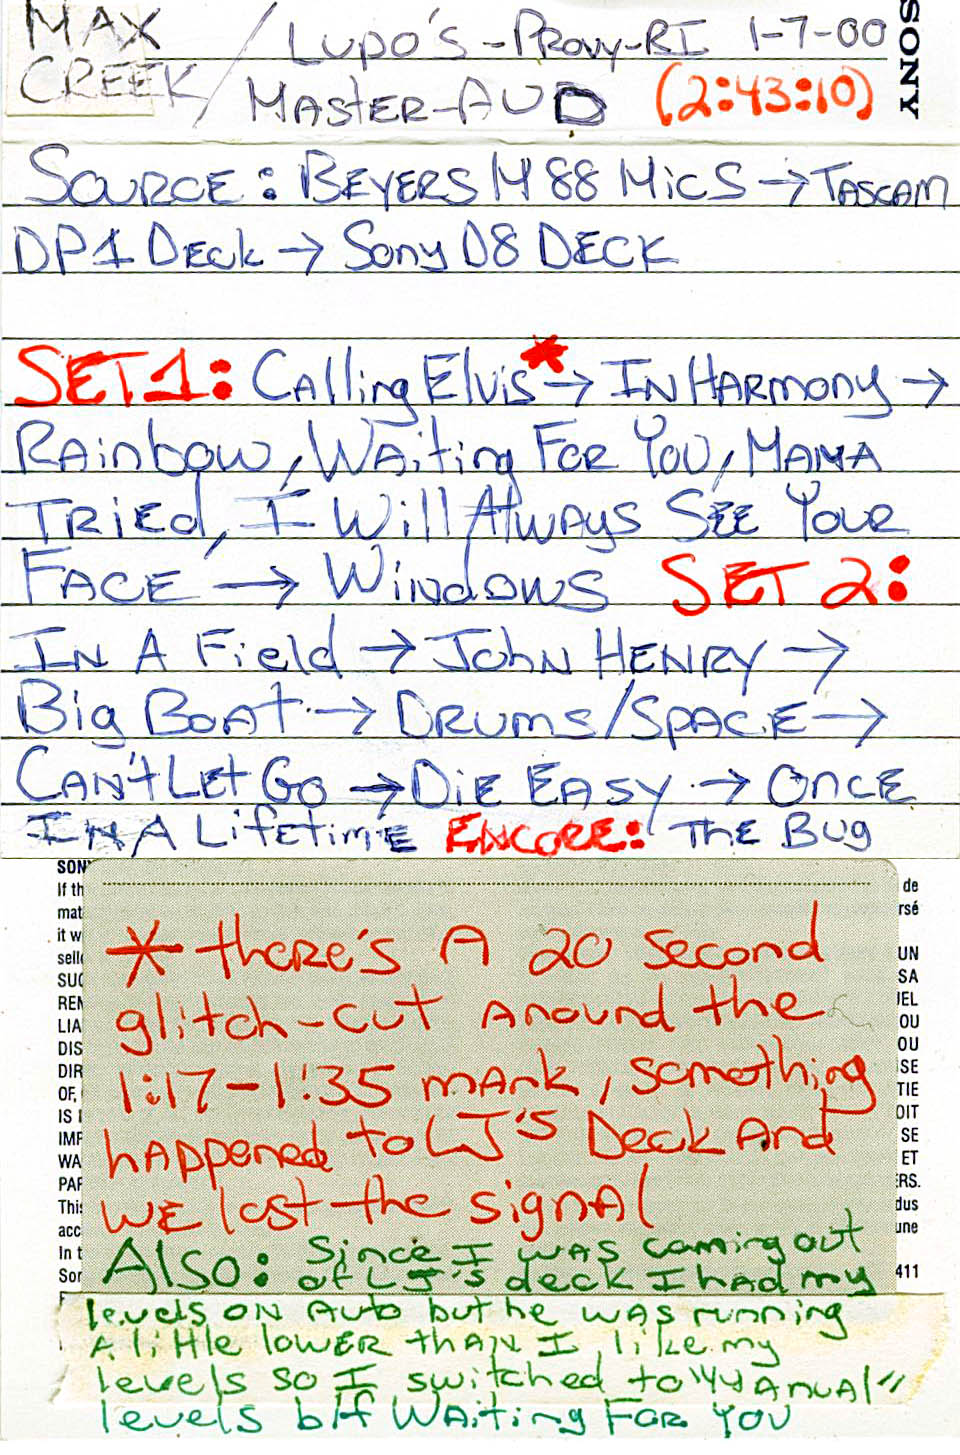 MAX CREEK / LUPO'S - PROVY - RI 1-7-00
MASTER-AUD (2:43:10)
SONY
SOURCE: BEYERS M88 MiCS → TASCAM
DP1 DECK → SONY D8 DECK
SET 1: CALLING ELVIS* → IN HARMONY →
RAINBOW, WAITING FOR YOU, MAMA
TRIED, I WILL ALWAYS SEE YOUR
FACE → WINDOWS SET 2:
IN A FIELD → JOHN HENRY →
BIG BOAT → DRUMS/SPACE →
CAN'T LET GO → DIE EASY → ONCE
IN A LIFETIME ENCORE: THE BUG
* there's A 20 second
glitch-cut Around the
1:17-1:35 mark, something
happened to LJ's Deck And
we lost the signal
Also: Since I was coming out
of LJ's deck I had my
levels on Auto but he was running
A little lower than I like my
levels so I switched to "MAnual"
levels b/f Waiting For You
SONY
If th
mat
it w
selle
SUC
REN
LIA
DIS
DIR
OF,
IS I
IMP
WA
PAR
This
acc
In t
Sor
de
rsé
UN
SA
UEL
OU
OU
SE
TIE
OIT
SE
ET
ERS.
dus
une
411